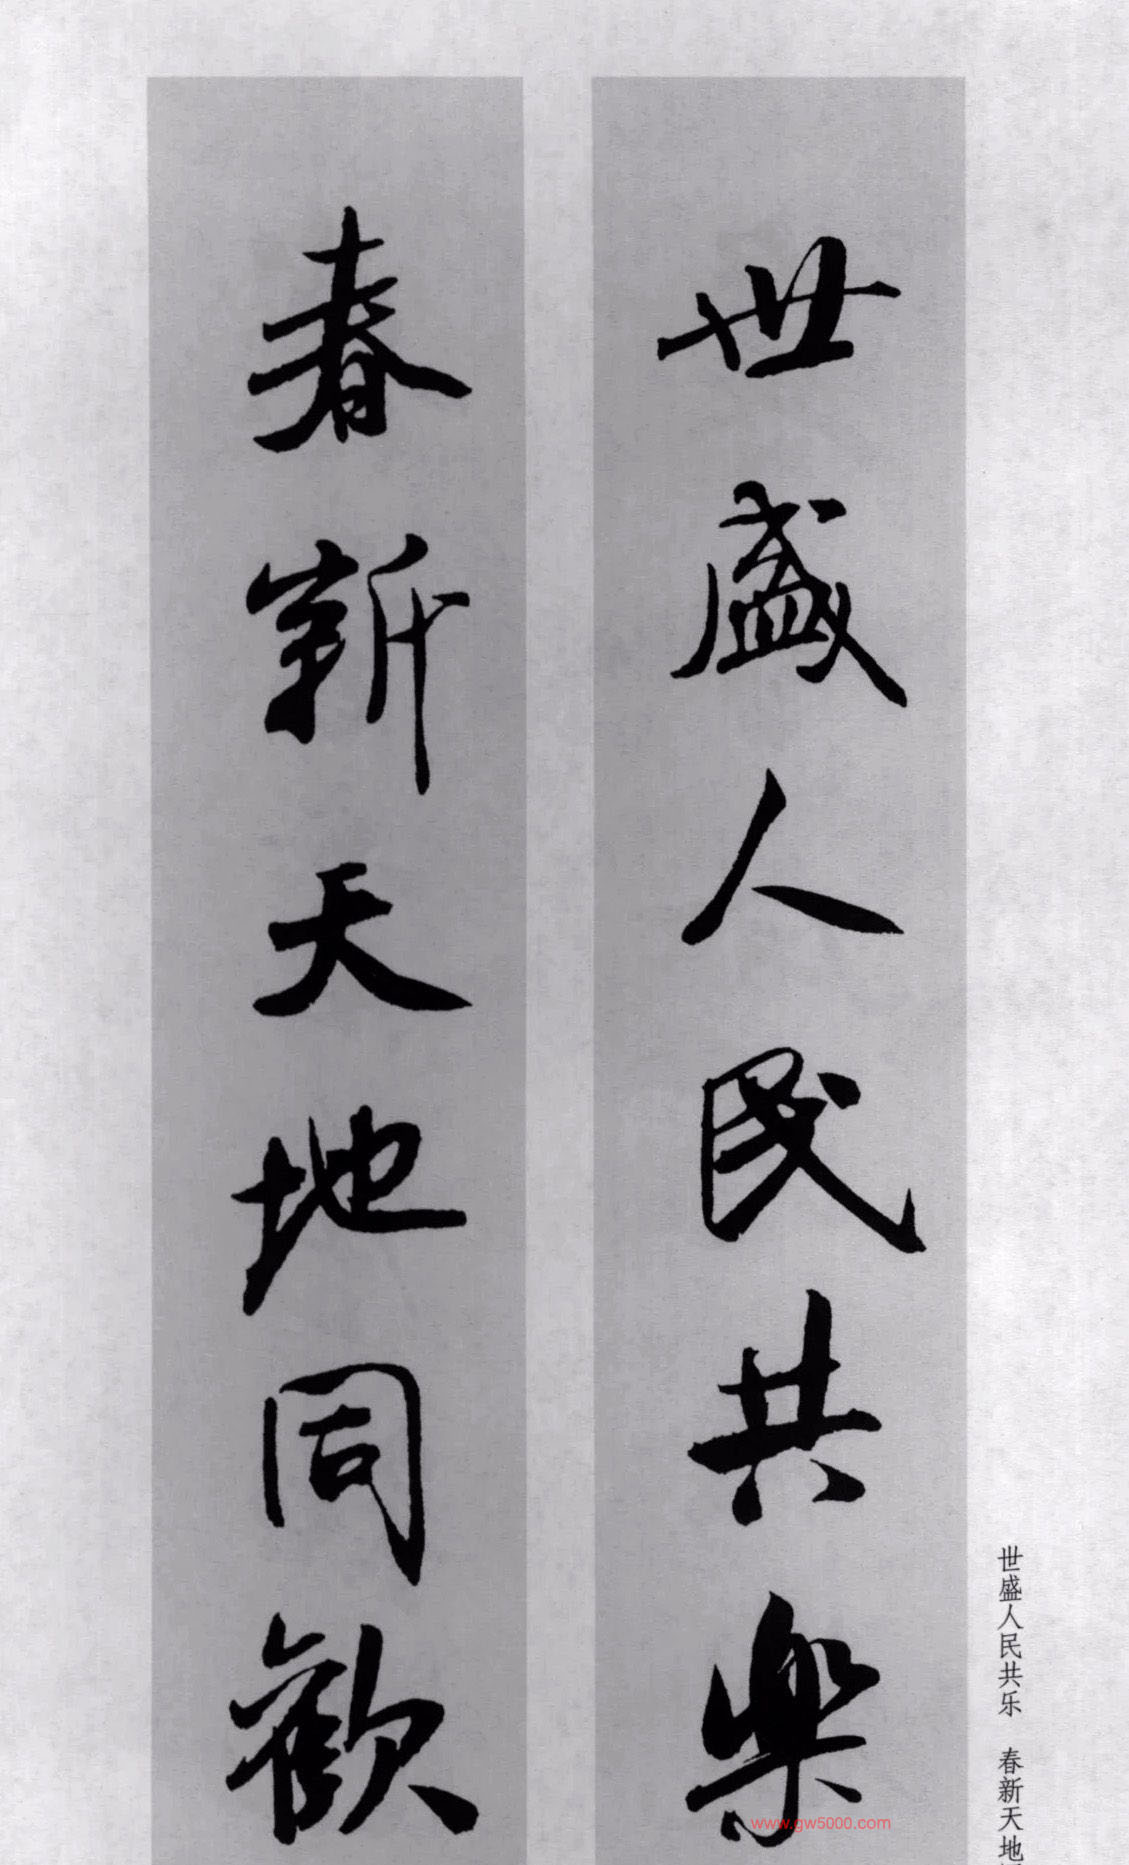 世盛人民共樂
春新天地同歡
世盛人民共乐 春新天地
www.gw5000.com